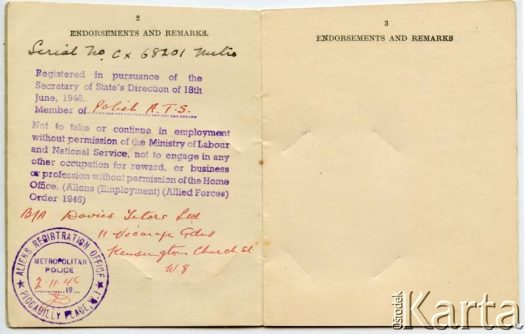 2
ENDORSEMENTS AND REMARKS.
Serial No. CX 68201
Registered in pursuance of the
Secretary of State's Direction of 18th
June, 1946.
Member of Polish A.T.S.
Not to take or continue in employment
without permission of the Ministry of Labour
and National Service, not to engage in any
other occupation for reward, or business
or profession without permission of the Home
Office. (Aliens (Employment) (Allied Forces)
Order 1946)
Davies Tutors Ltd
11 Vicarage Gdns
Kensington Church St
W8
ALIENS REGISTRATION OFFICE
METROPOLITAN
POLICE
2-11-46
PICCADILLY PLACE, W.1.
3
ENDORSEMENTS AND REMARKS
ośrodek
Karta